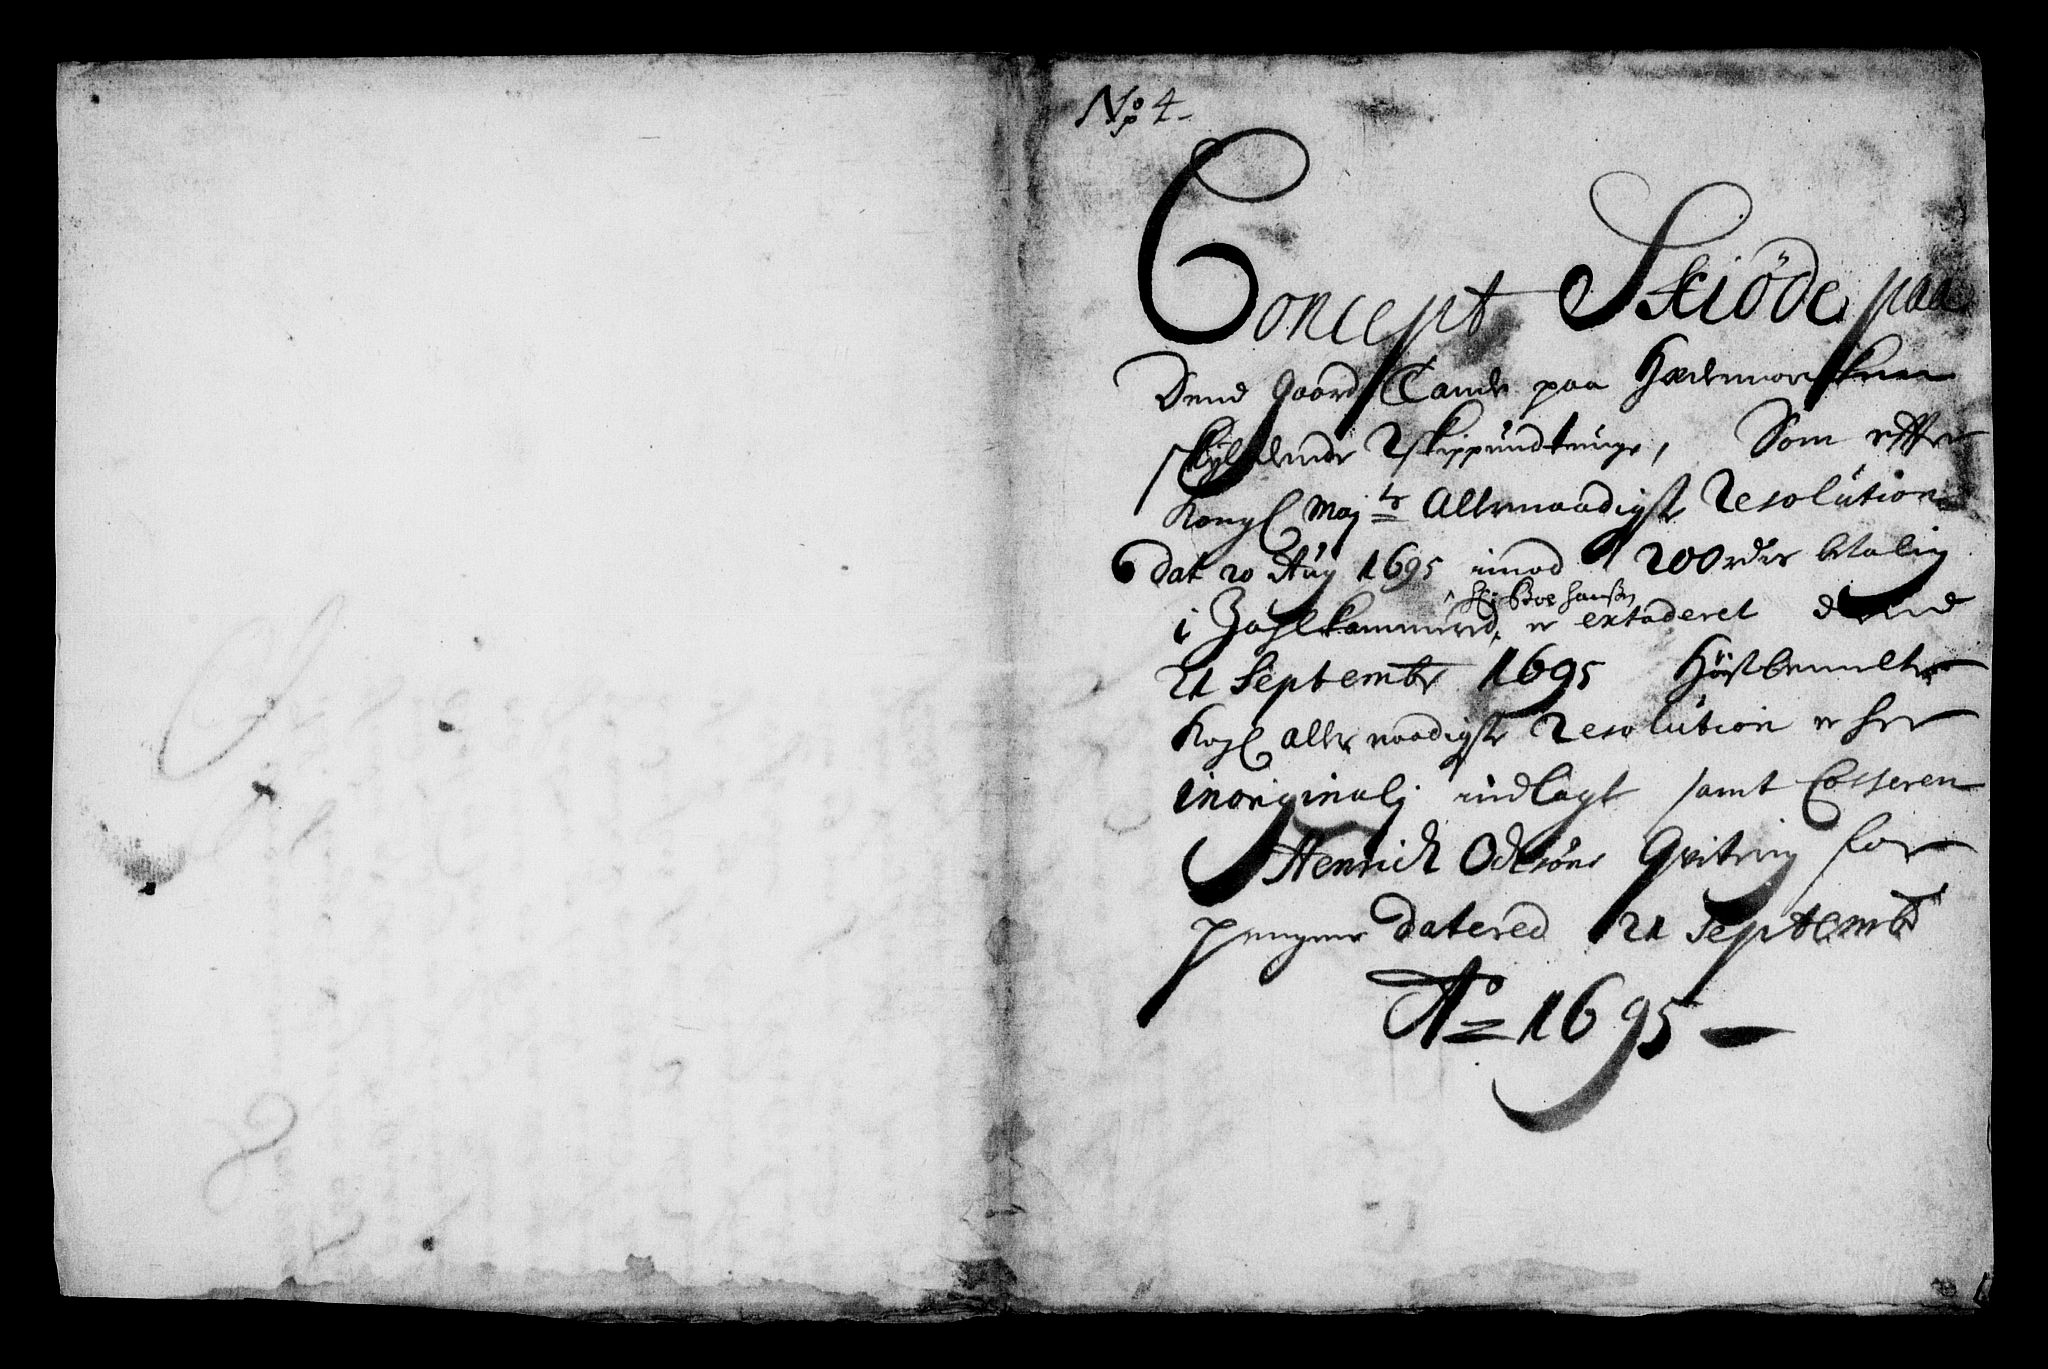 No 4
Concept Skiöde paa
Dend gaard Tande paa Hedemarken
skyldende 2 skippund tunge, Som effter
Kongl Maj ts Allernaadigste Resolution
dat 20 Aug 1695 imod 200 rdr betaling
i Zahlkammered er extaderet dend
21 Septembr 1695 Høistbemelte
Kogl allernaadigste Resolution er her
in originalj indlagt samt Casseren
Henrich Odesöns Qvitering for
pengene datered 21 Septembr
Ao 1695